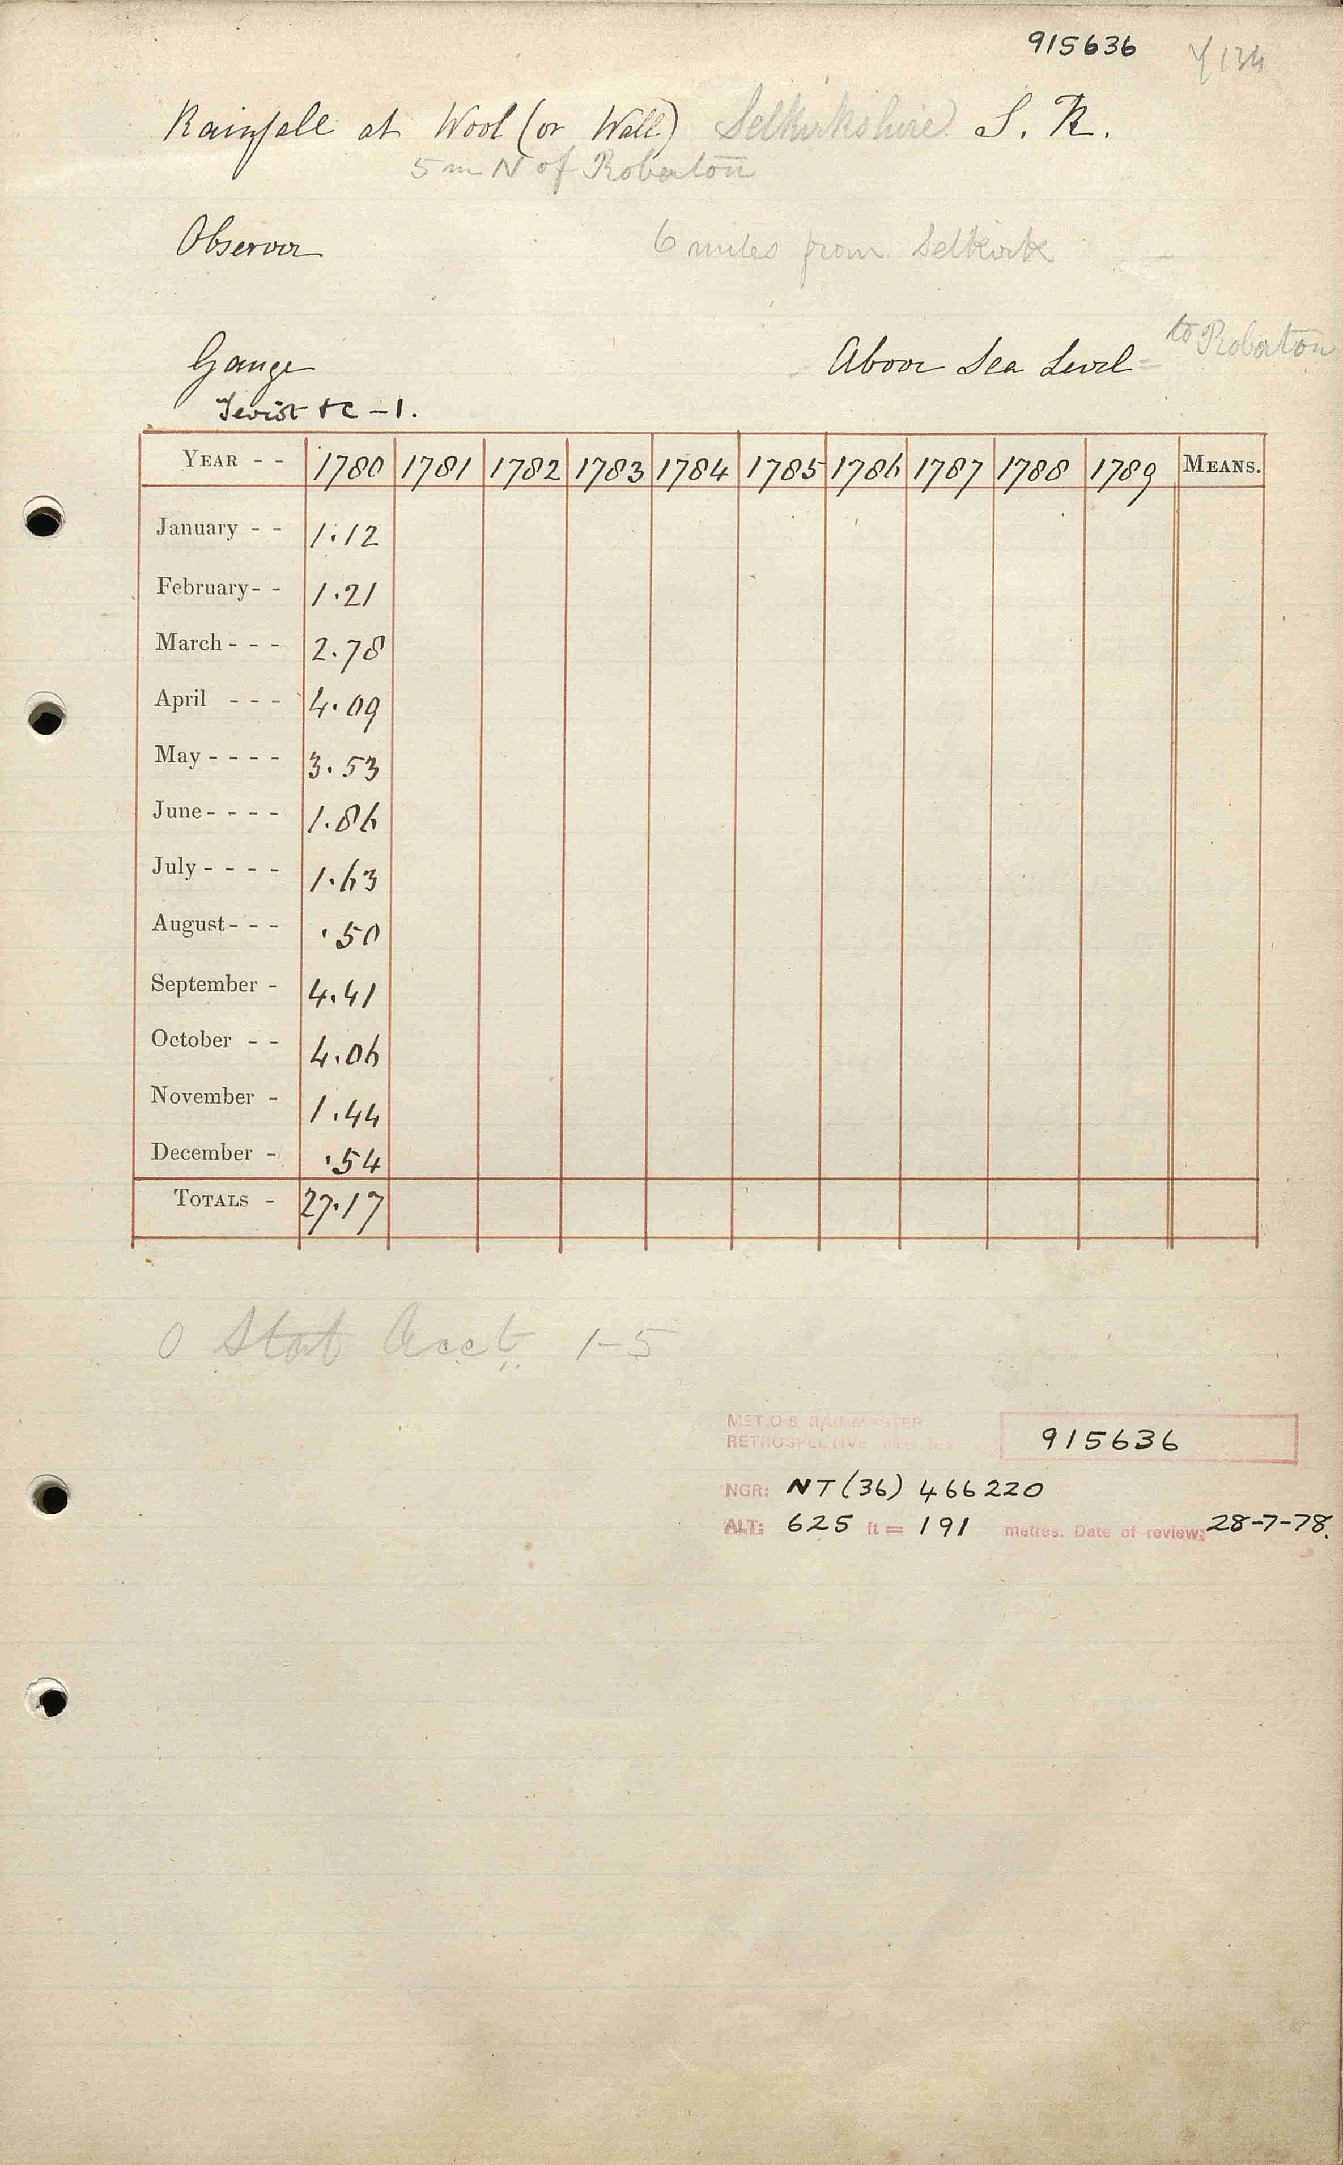 915636
Rainfall at Wool (or Wall) Selkirkshire S. R.
5 m N of Roberton
Observer 6 miles from Selkirk
to Roberton
Gauge Above Sea Level =
Teviot &c - 1.
YEAR - - 1780 1781 1782 1783 1784 1785 1786 1787 1788 1789 MEANS.
January - - 1.12
February - - 1.21
March - - - 2.78
April - - - 4.09
May - - - - 3.53
June - - - - 1.86
July - - - - 1.63
August - - - .50
September - 4.41
October - - 4.06
November - 1.44
December - .54
TOTALS - 27.17
O Stat Acct. 1-5
MET.O.8 RAINMASTER
RETROSPECTIVE 915636
NGR: NT (36) 466220
ALT: 625 ft = 191 metres. Date of review: 28-7-78.